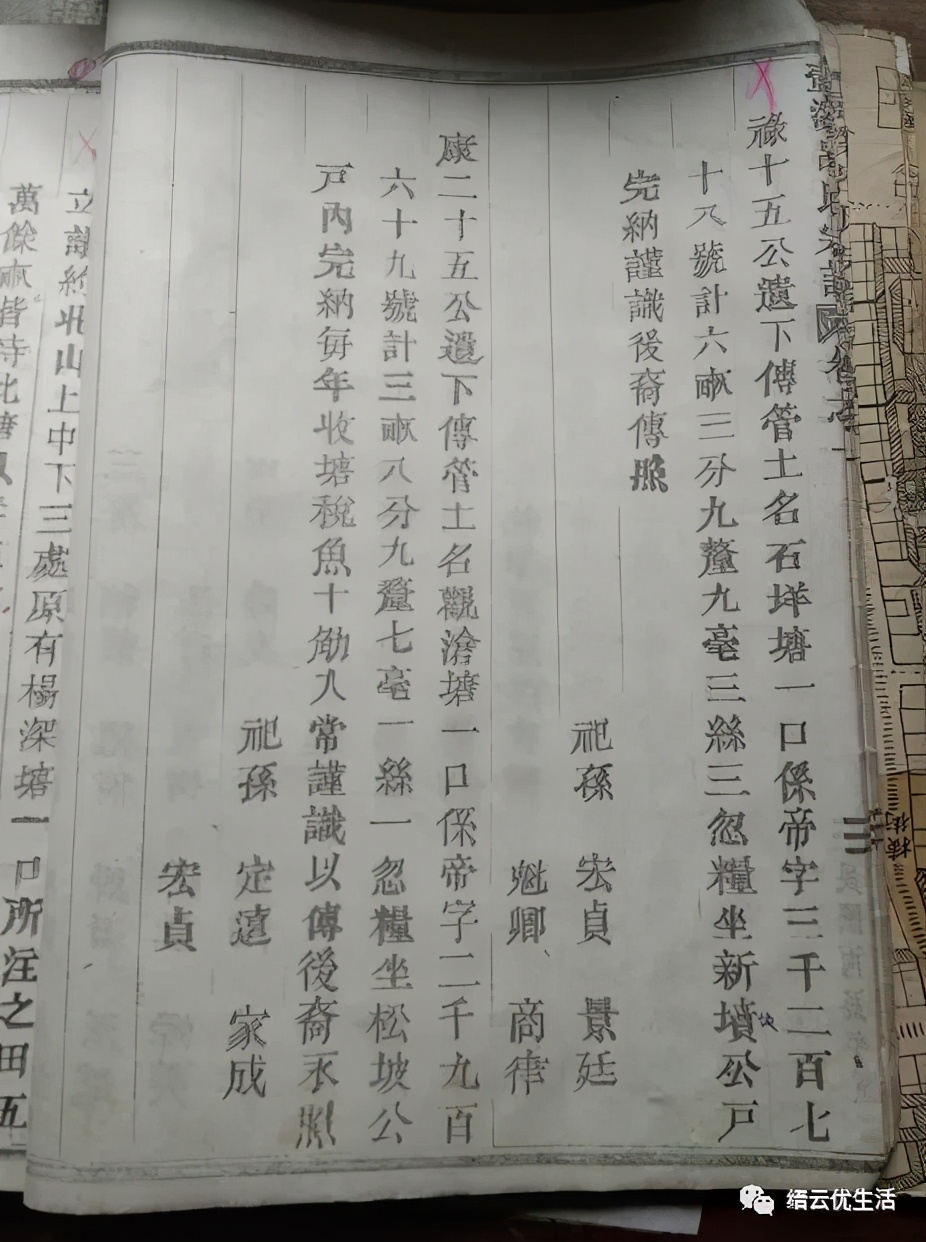 祿十五公遺下傳管土名石垟塘一口係帝字三千二百七
十八號計六畝三分九釐九毫三絲三忽糧坐新墳公戸
完納謹識後裔傳照
祀孫 宏貞 景廷
魁卿 商律
康二十五公遺下傳管土名觀滄塘一口係帝字二千九百
六十九號計三畝八分九釐七毫一絲一忽糧坐松坡公
戸內完納每年收塘稅魚十觔入常謹識以傳後裔永照
祀孫 定遠 家成
宏貞
立議約北山上中下三處原有楊深塘一口所注之田五
萬餘畝皆寺北塘
橫街
缙云优生活